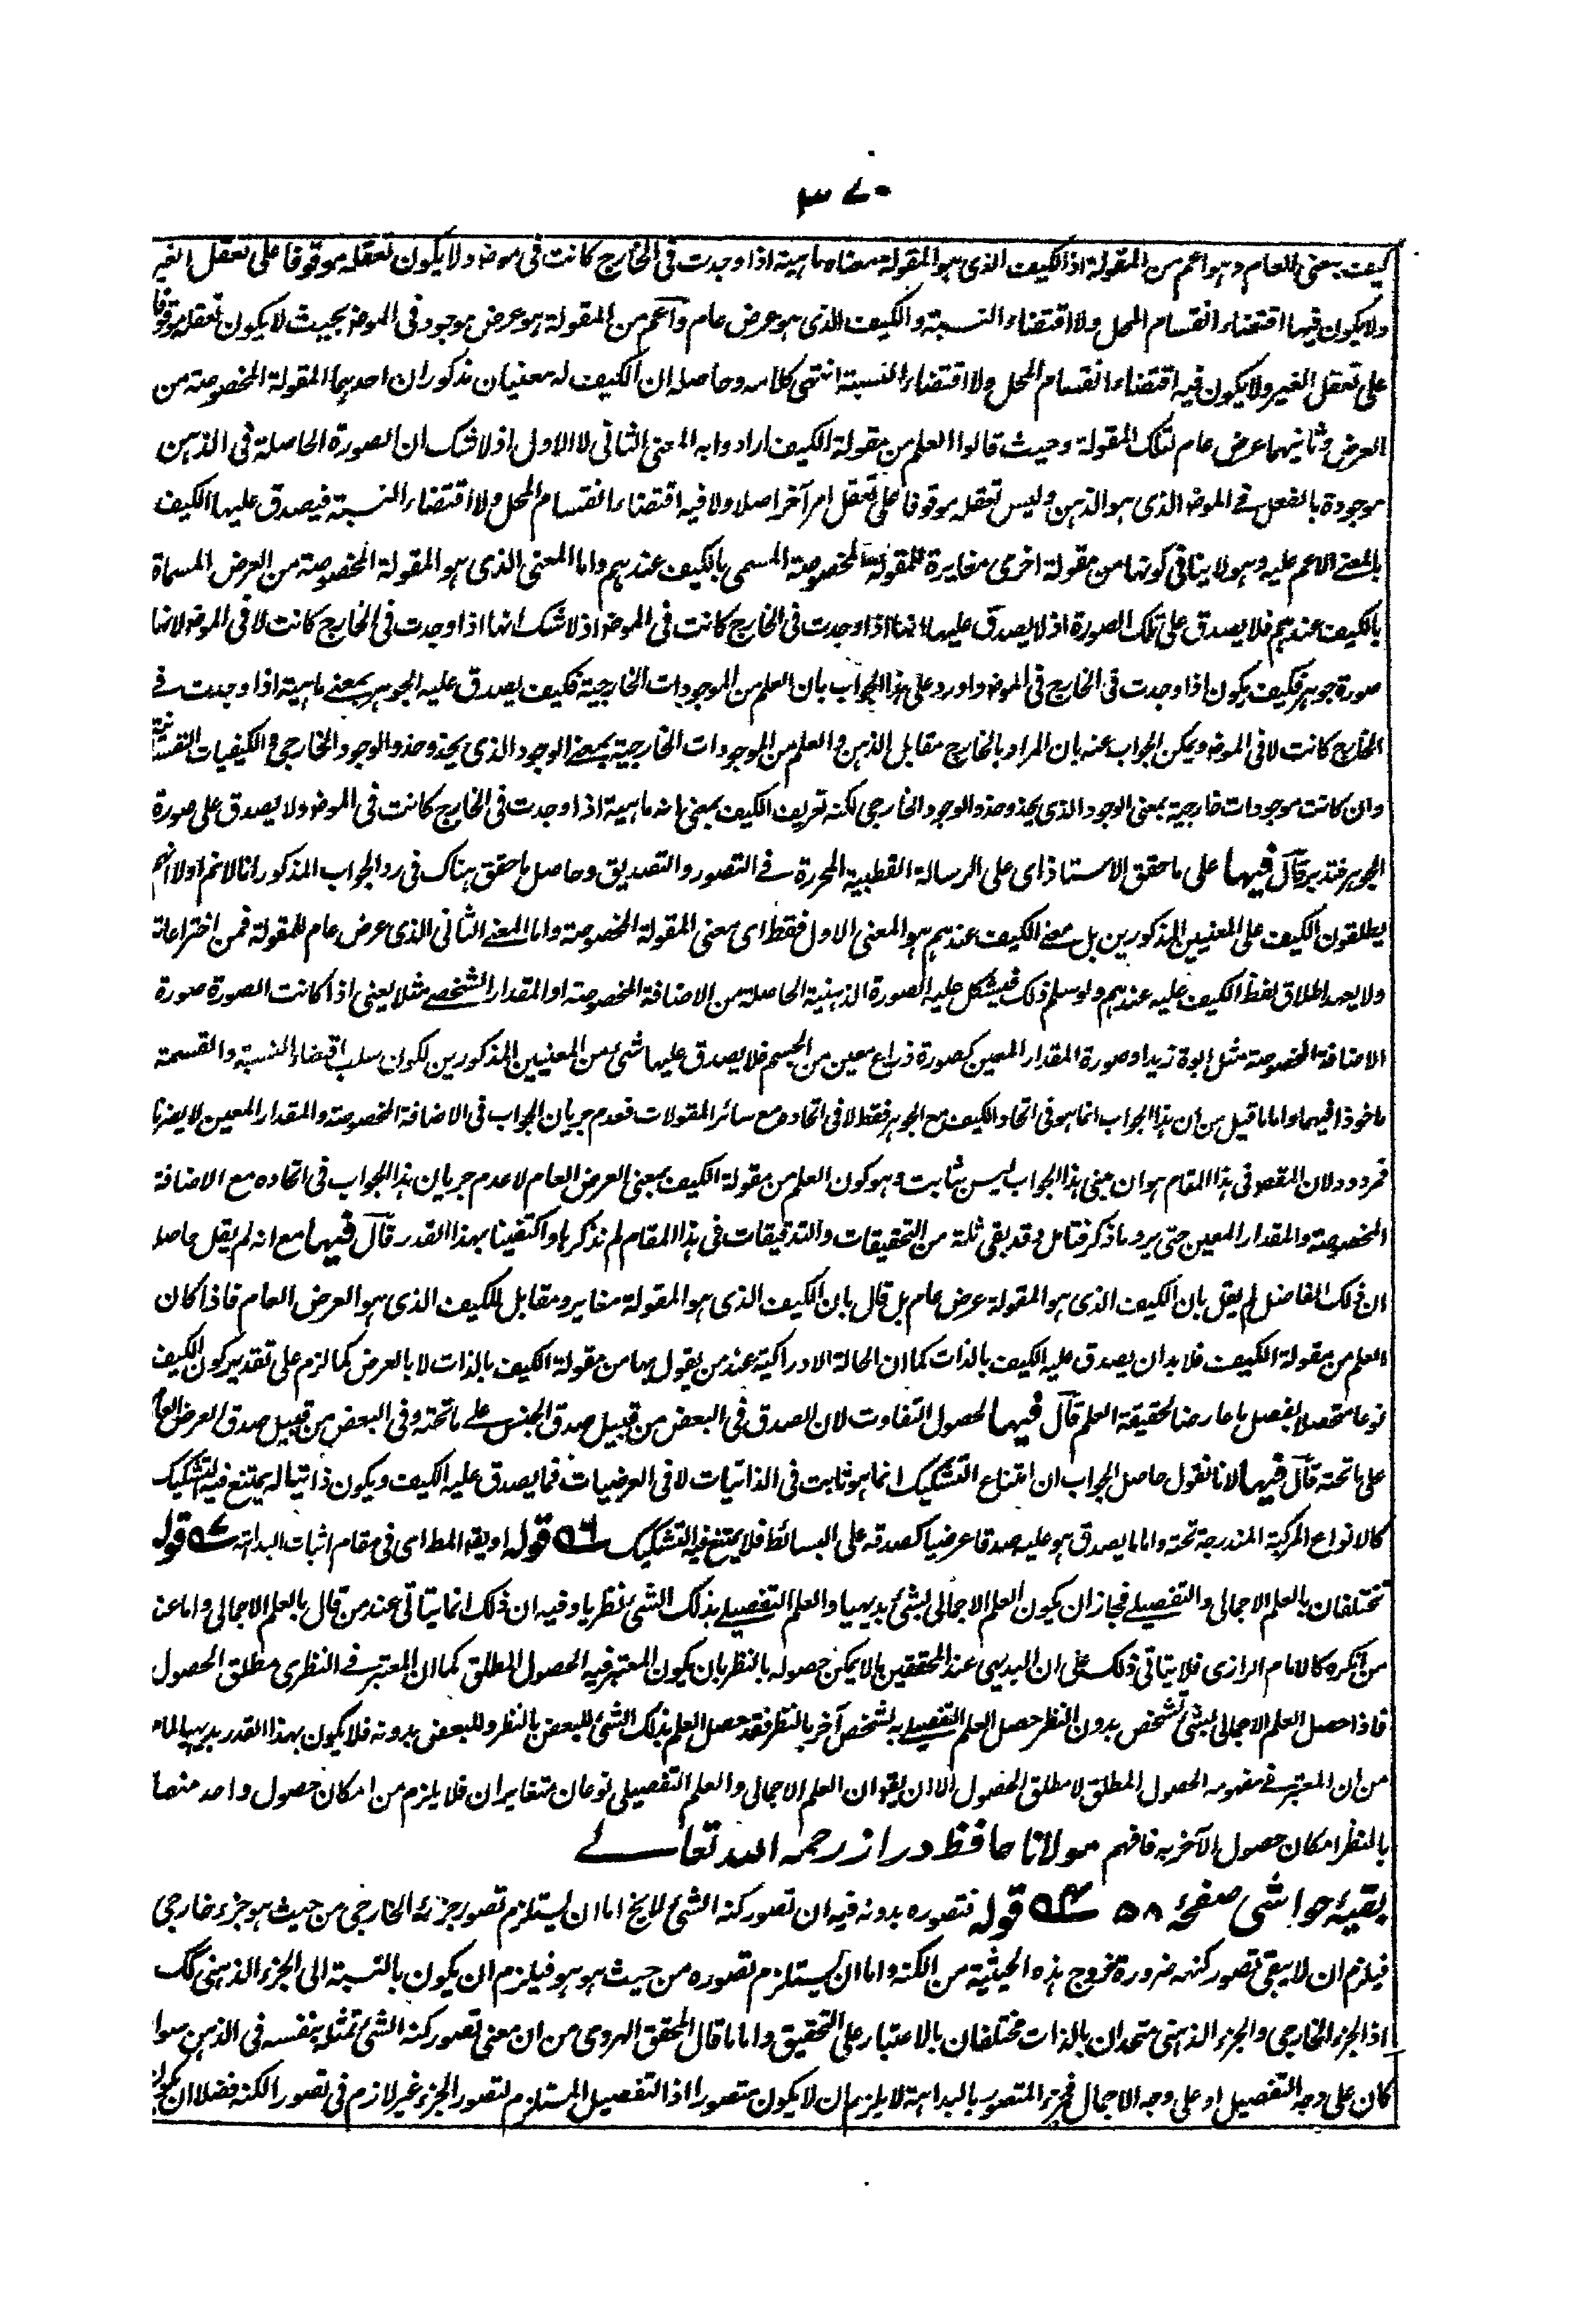 ٣٧٠
كيف بمعنى العام وهو اعم من المقولة اذ الكيف الذى هو المقولة معناه ماهية اذا وجدت فى الخارج كانت فى موضو ولا يكون تعقله موقوفا على تعقل الغير
ولا يكون فيها اقتضاء انقسام المحل ولا اقتضاء النسبة والكيف الذى هو عرض عام واعم من المقولة هو عرض موجود فى الموضو بحيث لا يكون تعقله موقوفا
على تعقل الغير ولا يكون فيه اقتضاء انقسام المحل ولا اقتضاء النسبة انتهى كلامه وحاصله ان الكيف له معنيان مذكوران احدهما المقولة المخصوصة من
العرض وثانيهما عرض عام لتلك المقولة وحيث قالوا العلم من مقولة الكيف ارادوا به المعنى الثانى لا الاول اذ لا شك ان الصورة الحاصلة فى الذهن
موجودة بالفعل فى الموضو الذى هو الذهن وليس تعقله موقوفا على تعقل امر آخر اصلا ولا فيه اقتضاء انقسام المحل ولا اقتضاء النسبة فيصدق عليها الكيف
بالمعنى الاعم عليه وهو لا ينافى كونها من مقولة اخرى مغايرة للمقولة المخصوصة المسمى بالكيف عندهم واما المعنى الذى هو المقولة المخصوصة من العرض المسماة
بالكيف عندهم فلا يصدق على تلك الصورة اذ لا يصدق عليها انها اذا وجدت فى الخارج كانت فى الموضو اذ لا شك انها اذا وجدت فى الخارج كانت لا فى الموضو لانها
صورة جوهر فكيف يكون اذا وجدت فى الخارج فى الموضو واورد على هذا الجواب بان العلم من الموجودات الخارجية فكيف يصدق عليه الجوهر بمعنى ماهية اذا وجدت فى
الخارج كانت لا فى الموضو ويمكن الجواب عنه بان المراد بالخارج مقابل الذهن والعلم من الموجودات الخارجية بمعنى الوجود الذى يحذو حذو الوجود الخارجى والكيفيات النفسانية
وان كانت موجودات خارجية بمعنى الوجود الذى يحذو حذو الوجود الخارجى لكنه تعريف الكيف بمعنى انه ماهية اذا وجدت فى الخارج كانت فى الموضو ولا يصدق على صورة
الجوهر فتدبر قال فيها على ما حقق الاستاذ اى على الرسالة القطبية المحررة فى التصور والتصديق وحاصل ما حقق هناك فى رد الجواب المذكور انا لا نم اولا انهم
يطلقون الكيف على المعنيين المذكورين بل معنى الكيف عندهم هو المعنى الاول فقط اى معنى المقولة المخصوصة واما المعنى الثانى الذى عرض عام للمقولة فمن اختراعاته
ولا يصح اطلاق لفظ الكيف عليه عندهم ولو سلم ذلك فيشكل عليه الصورة الذهنية الحاصلة من الاضافة المخصوصة او المقدار الشخصى مثلا يعنى اذا كانت الصورة صورة
الاضافة المخصوصة مثل ابوة زيد او صورة المقدار المعين كصورة ذراع معين من الجسم فلا يصدق عليها شئ من المعنيين المذكورين لكون سلب اقتضاء النسبة والقسمة
ماخوذا فيهما واما ما قيل من ان هذا الجواب انما هو فى اتحاد الكيف مع الجوهر فقط لا فى اتحاده مع سائر المقولات فعدم جريان الجواب فى الاضافة المخصوصة والمقدار المعين لا يضرنا
فمردود لان المقصو فى هذا المقام هو ان مبنى هذا الجواب ليس بثابت وهو كون العلم من مقولة الكيف بمعنى العرض العام لا عدم جريان هذا الجواب فى اتحاده مع الاضافة
المخصوصة والمقدار المعين حتى يرد ما ذكر فتامل وقد بقى ثلة من التحقيقات والتدقيقات فى هذا المقام لم نذكرها واكتفينا بهذا القدر قال فيها مع انه لم يقل حاصله
ان ذلك الفاضل لم يقل بان الكيف الذى هو المقولة عرض عام بل قال بان الكيف الذى هو المقولة مغاير ومقابل للكيف الذى هو العرض العام فاذا كان
العلم من مقولة الكيف فلا بد ان يصدق عليه الكيف بالذات كما ان الحالة الادراكية عند من يقول بها من مقولة الكيف بالذات لا بالعرض كما لزم على تقدير كون الكيف
نوعا متحصلا بفصل ما عارضا لحقيقة العلم قال فيها لحصول التفاوت لان الصدق فى البعض من قبيل صدق الجنس على ما تحته وفى البعض من قبيل صدق العرض العام
على ما تحته قال فيها لانا نقول حاصل الجواب ان امتناع التشكيك انما هو ثابت فى الذاتيات لا فى العرضيات فما يصدق عليه الكيف ويكون ذاتيا له يمتنع فيه التشكيك
كالانواع المركبة المندرجة تحته واما ما يصدق هو عليه صدقا عرضيا كصدقه على البسائط فلا يمتنع فيه التشكيك ٥٦ قوله او يقه المط اى فى مقام اثبات البداهة قوله
تختلفان بالعلم الاجمالى والتفصيلى فجاز ان يكون العلم الاجمالى بشئ بديهيا والعلم التفصيلى بذلك الشئ نظريا وفيه ان ذلك انما يتاتى عند من قال بالعلم الاجمالى واما عند
من انكره كالامام الرازى فلا يتاتى ذلك على ان البديهى عند المحققين ما لا يمكن حصوله بالنظر بان يكون المعتبر فيه الحصول المطلق كما ان المعتبر فى النظرى مطلق الحصول
فاذا حصل العلم الاجمالى بشئ لشخص بدون النظر حصل العلم التفصيلى به لشخص آخر بالنظر فقد حصل العلم بذلك الشئ للبعض بالنظر وللبعض بدونه فلا يكون بهذا القدر بديهيا لما مر
من ان المعتبر فى مفهومه الحصول المطلق لا مطلق الحصول الا ان يقو ان العلم الاجمالى والعلم التفصيلى نوعان متغايران فلا يلزم من امكان حصول واحد منهما
بالنظر امكان حصول الآخر به فافهم مولانا حافظ دراز رحمه الله تعالى
بقيۂ حواشى صفحه ٥٨ قوله فتصوره بدونه فيه ان تصور كنه الشئ لا يخ اما ان يستلزم تصور جزئه الخارجى من حيث هو جزء خارجى
فيلزم ان لا يبقى تصور كنهه ضرورة خروج هذه الحيثية من الكنه واما ان يستلزم تصوره من حيث هو هو فيلزم ان يكون بالنسبة الى الجزء الذهنى كك
اذ الجزء الخارجى والجزء الذهنى متحدان بالذات مختلفان بالاعتبار على التحقيق واما ما قال المحقق الهروى من ان معنى تصور كنه الشئ تمثله بنفسه فى الذهن سواء
كان على وجه التفصيل او على وجه الاجمال فجزء المتصور بالبداهة لا يلزم ان لا يكون متصورا اذ التفصيل المستلزم لتصور الجزء غير لازم فى تصور الكنه فضلا ان يكون